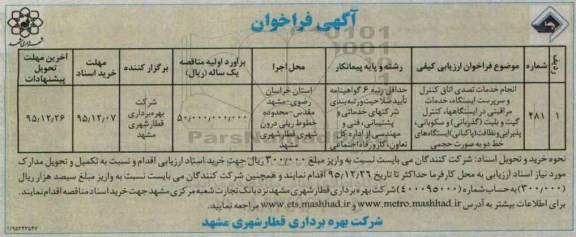 آگهی فراخوان
ردیف
شماره
موضوع فراخوان ارزیابی کیفی
رشته و پایه پیمانکار
محل اجرا
برآورد اولیه مناقصه یک ساله (ریال)
برگزار کننده
مهلت خرید اسناد
آخرین مهلت تحویل پیشنهادات
۱
۲۸۱
انجام خدمات تصدی اتاق کنترل
و سرپرست ایستگاه، خدمات
مراقبتی در ایستگاهها، کنترل
گیت و بلیت (گذربانی) و سکوبانی،
پذیرایی و نظافت (پاکبانی) ایستگاه‌های
خط دو به صورت حجمی
حداقل رتبه ۶ گواهینامه
تأیید صلاحیت و رتبه‌بندی
شرکتهای خدماتی و
پشتیبانی، فنی و
مهندسی از اداره کل
تعاون، کار و رفاه اجتماعی
استان خراسان
رضوی-مشهد
مقدس-محدوده
خطوط ریلی درون
شهری قطارشهری
مشهد
۵۰,۰۰۰,۰۰۰,۰۰۰
شرکت
بهره‌برداری
قطارشهری
مشهد
۹۵/۱۲/۰۷
۹۵/۱۲/۲۶
نحوه خرید و تحویل اسناد: شرکت کنندگان می بایست نسبت به واریز مبلغ ۳۰۰/۰۰۰ ریال جهت خرید اسناد ارزیابی اقدام و نسبت به تکمیل و تحویل مدارک
مورد نیاز اسناد ارزیابی به محل کارفرما حداکثر تا تاریخ ۹۵/۱۲/۲۶ اقدام نمایند و همچنین شرکت کنندگان می بایست نسبت به واریز مبلغ سیصد هزار ریال
(۳۰۰/۰۰۰) به حساب شماره (۴۰۰۰۹۵۰۰۰) شرکت بهره برداری قطارشهری مشهد نزد بانک تجارت شعبه مرکزی مشهد جهت خرید اسناد مناقصه اقدام نمایند.
برای اطلاعات بیشتر به آدرس www.metro.mashhad.ir و www.ets.mashhad.ir مراجعه نمایید.
شرکت بهره برداری قطارشهری مشهد